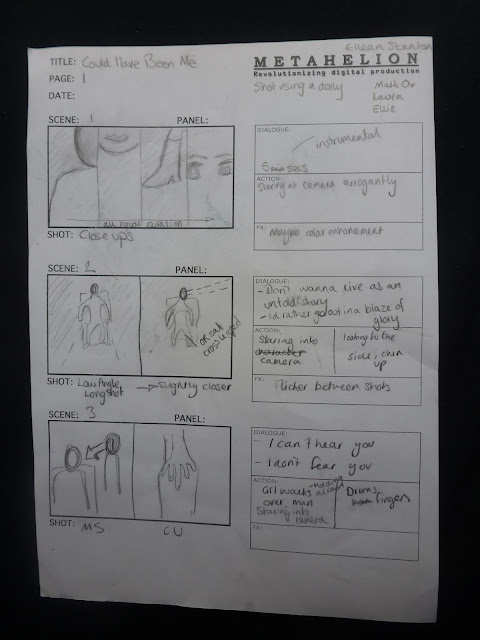 TITLE: Could Have Been Me
PAGE: 1
DATE:
METAHELION
Revolutionizing digital production
Shot using a dolly
Laura
Ellie
SCENE: 1 PANEL:
SHOT: Close ups
DIALOGUE:
instrumental
secs
ACTION:
Staring at camera arrogantly
FX: Maybe color enhancement
SCENE: 2 PANEL:
or sat
cross legged
SHOT: Low Angle, → slightly closer
Long shot
DIALOGUE:
- Don't wanna live as an
untold story
- id rather go out in a blaze of
glory
ACTION:
Staring into
character
camera
looking to the
side, chin
up
FX: flicker between shots
SCENE: 3 PANEL:
SHOT: MS CU
DIALOGUE:
- I can't hear you
- I don't fear you
ACTION:
Girl walks
over, man
Staring into
camera
Drums
fingers
FX: